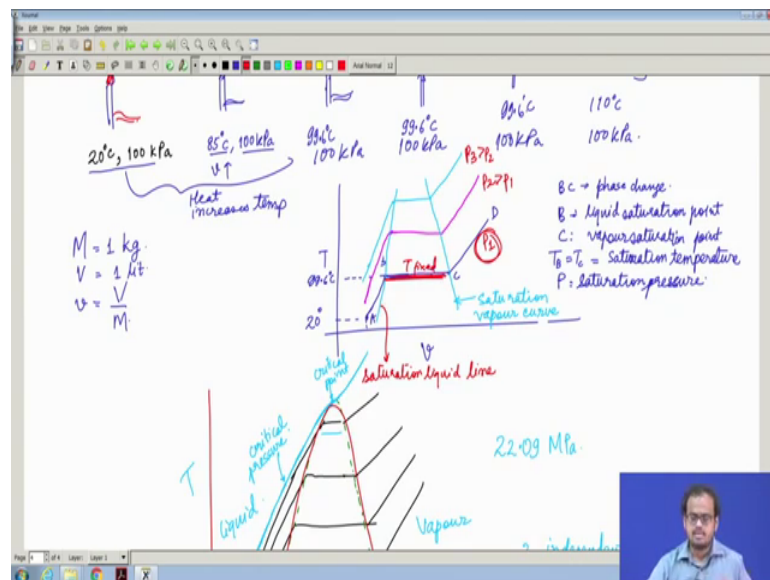 Journal
File Edit View Page Tools Options Help
Arial Normal 12
20°C, 100 kPa
85°C, 100 kPa
v↑
99.6°C
100 kPa
99.6°C
100 kPa
99.6°C
100 kPa
110°C
100 kPa.
Heat
increases temp
M = 1 kg.
V = 1 lit
v = V/M.
T
99.6°C
20°
A
B
C
D
T fixed
P1
P2>P1
P3>P2
v
saturation
vapour curve
saturation liquid line
BC → phase change.
B → liquid saturation point
C: vapour saturation point
TB = TC = Saturation temperature
P: saturation pressure.
critical
point
critical
pressure
T
liquid.
Vapour
22.09 MPa.
2 independe
Page 4 of 4 Layer: Layer 1